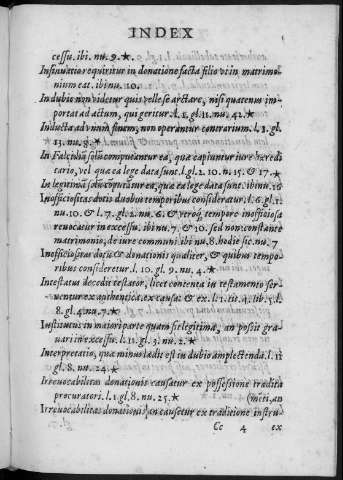 INDEX
cessu. ibi. nu. 9. ★
Insinuatio requiritur in donatione facta filio vt in matrimo-
nium eat. ibi nu. 10.
In dubio non videtur quis velle se arctare, nisi quatenus im-
portat ad actum, qui geritur. l. 1. gl. 11. nu. 42. ★
Inducta ad vnum finem, non operantur contrarium. l. 1. gl.
13. nu. 8. ★
In Falcidia solum computantur ea, quæ capiuntur iure heredi
tario, vel quæ ea lege data sunt. l. gl. 2. nu. 15. & 17. ★
In legitima solū cōputātur ea, quæ ea lege data sunt. ibi nu. 16
Inofficiositas dotis duobus temporibus consideratur. l. 6. gl. 1.
nu. 10. & l. 7. gl. 2. nu. 6. & vtroq; tempore inofficiosa
reuocatur in excessu. ibi nu. 7. & 10. sed non constante
matrimonio, de iure communi ibi nu. 8. hodie sic. nu. 7
Inofficiositas dotis & donationis qualiter, & quibus tempo-
ribus consideretur. l. 10. gl. 9. nu. 4. ★
Intestatus decedit testator, licet contenta in testamento ser-
uentur ex authentica. ex causa: & ex. l. 1. tit. 4. lib. 5. l.
8. gl. 4. nu. 7. ★
Institutus in maiori parte quam sit legitima, an possit graua-
uari in excessu. l. 11. gl. 3. nu. 2. ★
Interpretatio, qua minus lædit est in dubio amplectenda. l. 11
gl. 8. nu. 24. ★
Irreuocabilitas donationis causatur ex possessione tradita
procuratori. l. 1. gl. 8. nu. 25. ★
Irreuocabilitas donationis, an causetur ex traditione instru-
Cc 4 ex